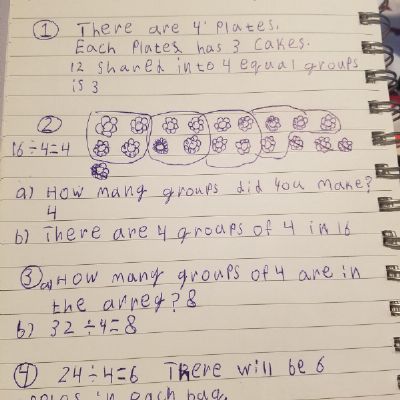 ① There are 4 Plates.
Each Plates has 3 Cakes.
12 shared into 4 equal groups
is 3
②
16÷4=4
a) How many groups did you make?
4
b) There are 4 groups of 4 in 16
③ a) How many groups of 4 are in
the arrey? 8
b) 32÷4=8
④ 24÷4=6 There will be 6
in each bag.